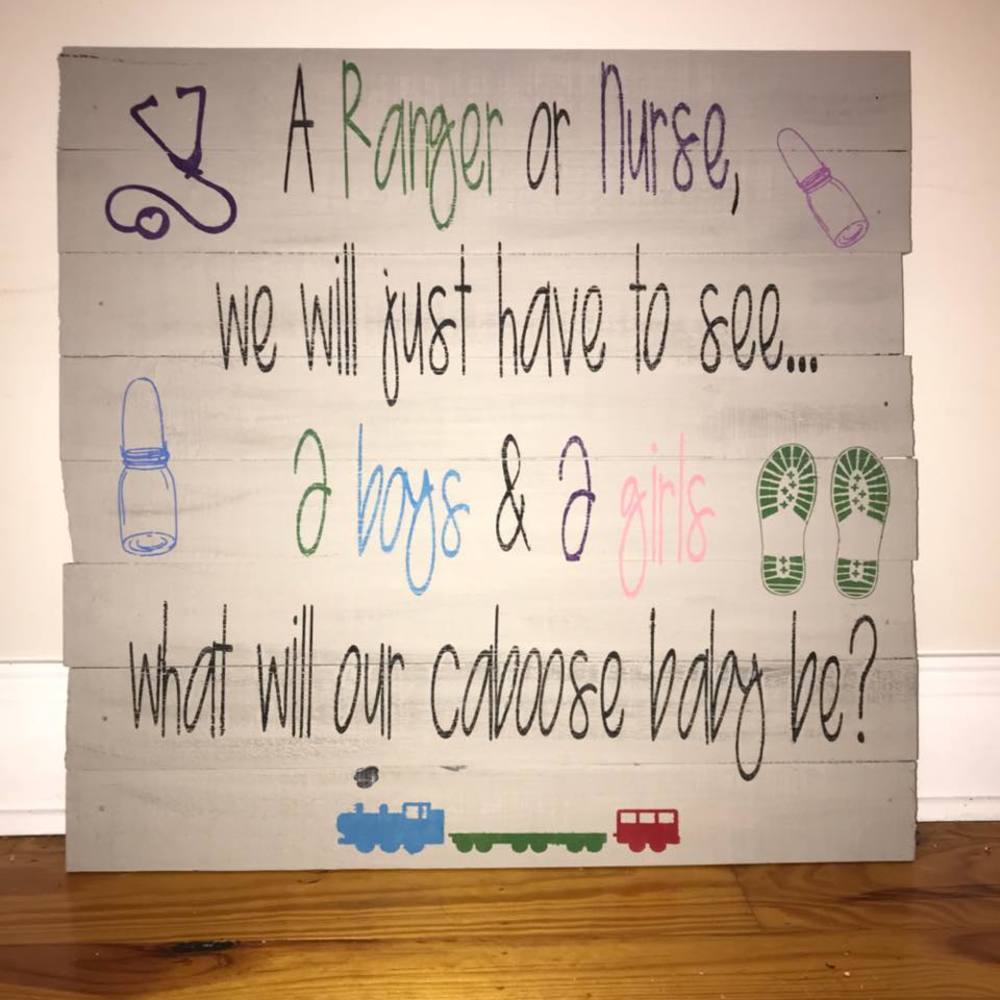 A Ranger or Nurse,
we will just have to see...
2 boys & 2 girls
what will our caboose baby be?